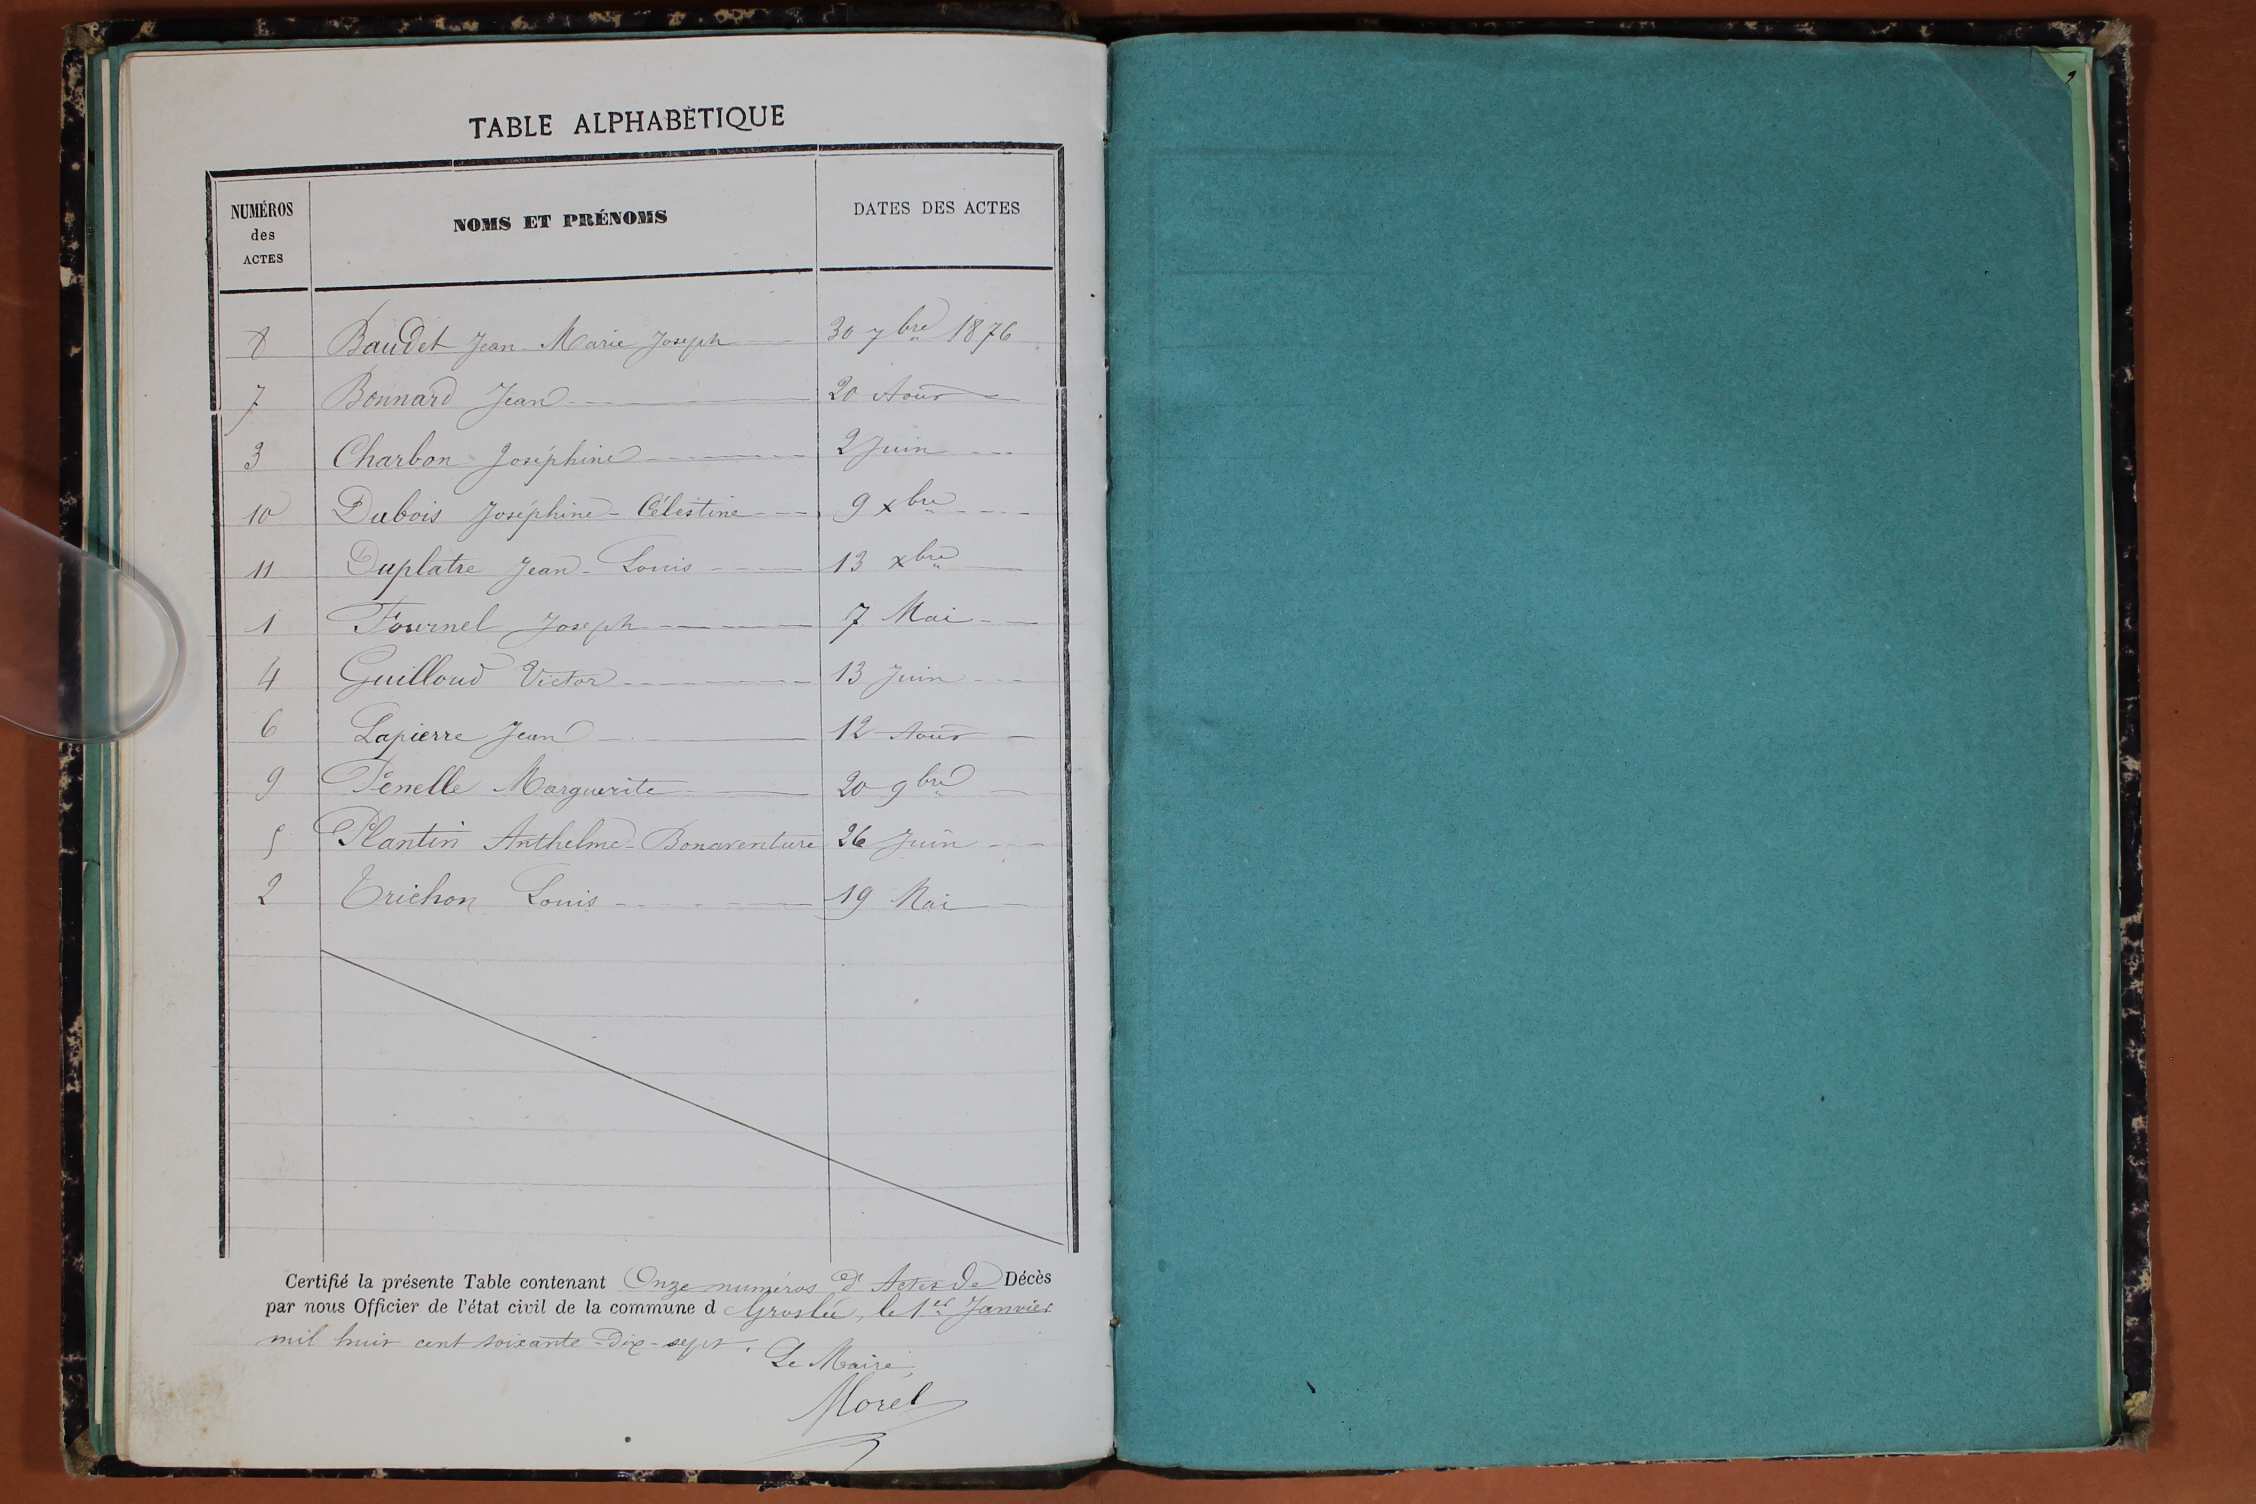 TABLE ALPHABÉTIQUE
NUMÉROS des ACTES NOMS ET PRÉNOMS DATES DES ACTES
8 Baudet Jean Marie Joseph 30 7bre 1876
7 Bonnard Jean 20 Août
3 Charbon Joséphine 2 Juin
10 Dubois Joséphine-Célestine 9 xbre
11 Duplatre Jean-Louis 13 xbre
1 Fournel Joseph 7 Mai
4 Guilloud Victor 13 Juin
6 Lapierre Jean 12 Août
9 Penelle Marguerite 20 9bre
5 Plantin Anthelme-Bonaventure 26 Juin
2 Trichon Louis 19 Mai
Certifié la présente Table contenant Onze numéros d' Actes de Décès
par nous Officier de l'état civil de la commune d Groslée, le 1er Janvier
mil huit cent soixante-dix-sept.
Le Maire,
Morel